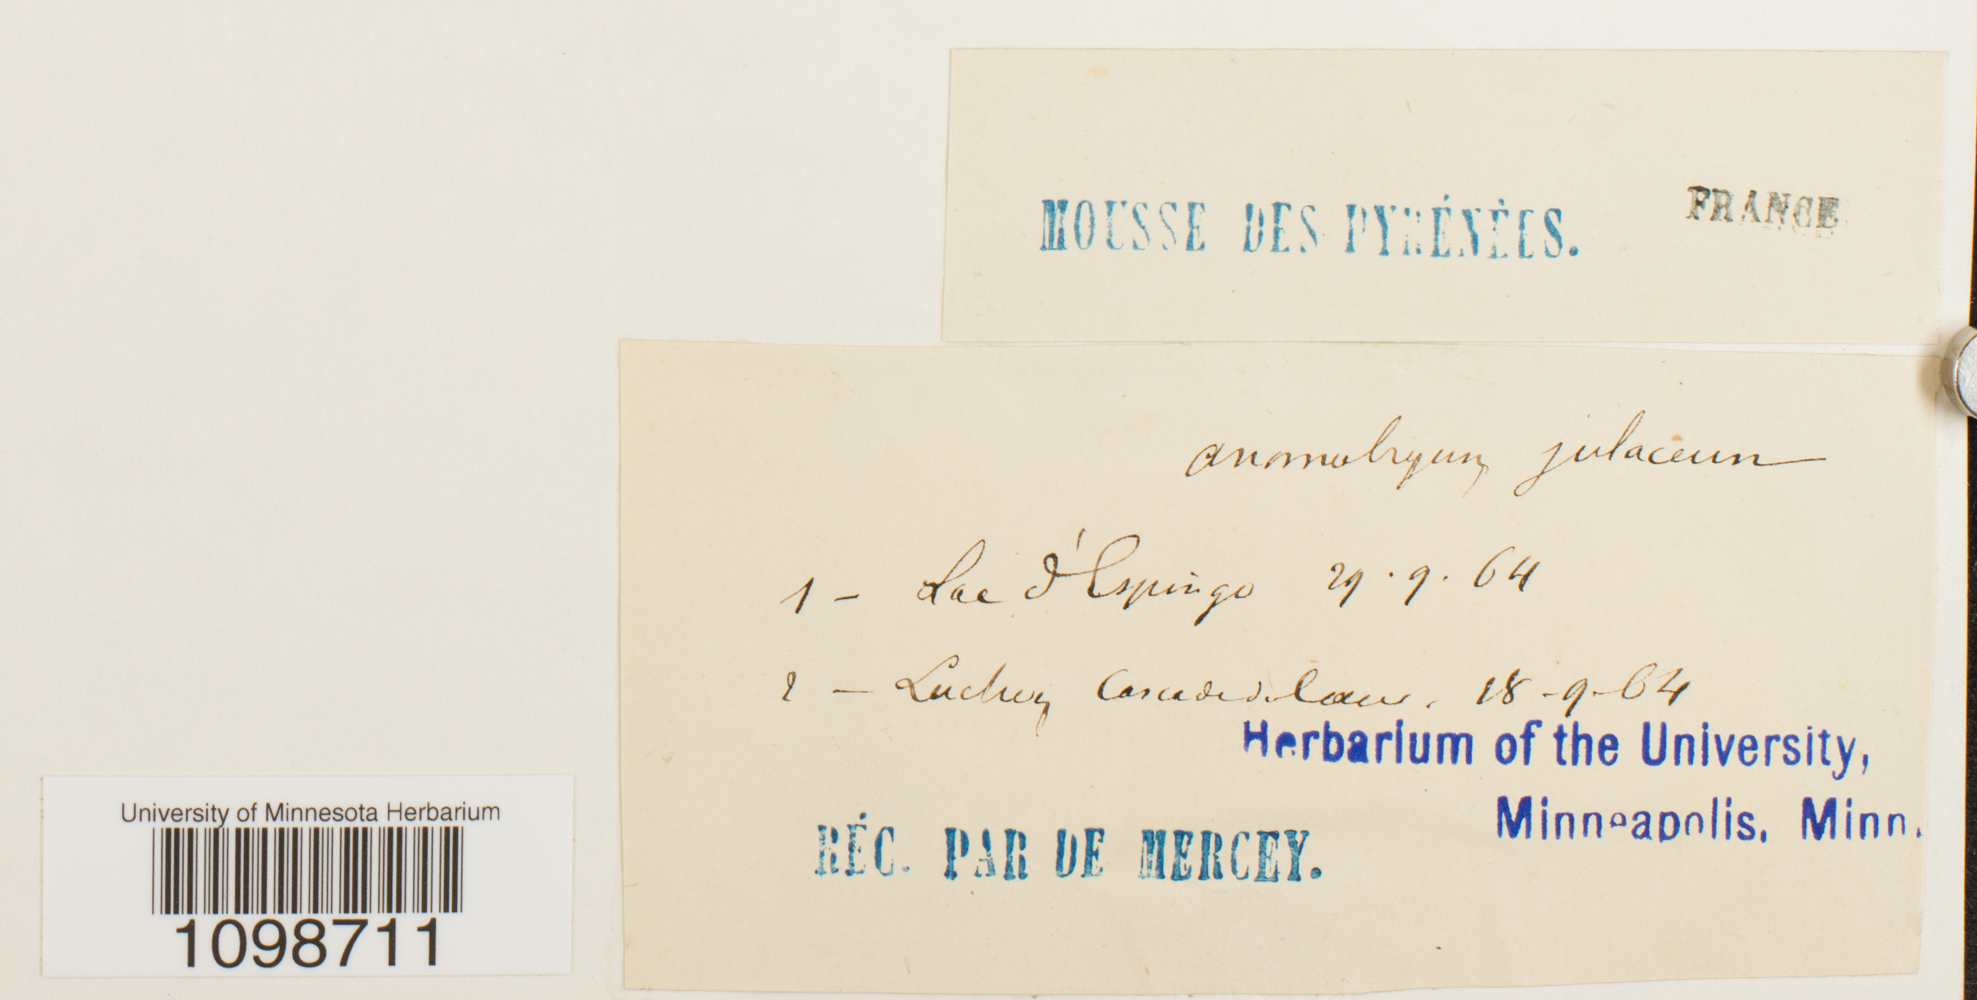 MOUSSE DES PYRÉNÉES.
FRANCE
anomobryum julaceum
1 - Lac d'Espingo 29.9.64
2 - Luchon 18-9-64
Herbarium of the University,
Minneapolis, Minn.
RÉC. PAR DE MERCEY.
University of Minnesota Herbarium
1098711